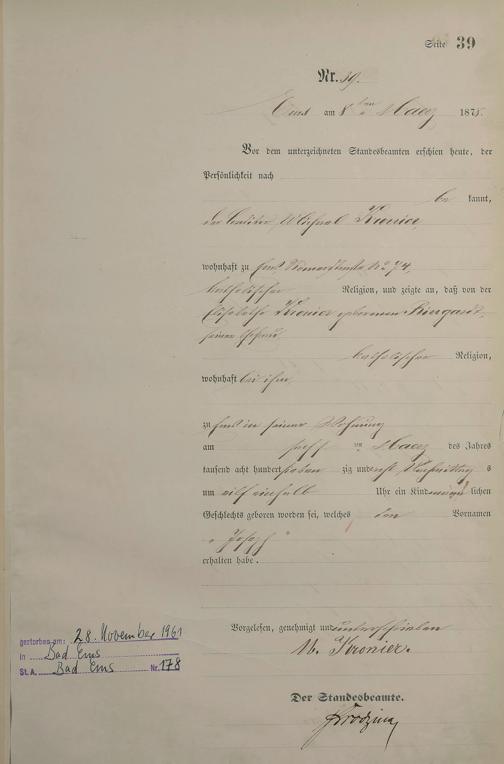 Seite 39
Nr. 39.
Ems am 8ten Maerz 1875.
Vor dem unterzeichneten Standesbeamten erschien heute, der
Persönlichkeit nach
be kannt,
der Michael Kronier,
wohnhaft zu Ems, No 74,
katholischer Religion, und zeigte an, daß von der
Elisabetha Kronier geborenen
seiner Ehefrau
katholischer Religion,
wohnhaft bei ihm,
zu Ems in seiner Wohnung
am Maerz des Jahres
tausend acht hundert sieben zig und Nachmittag s
um eilf einhalb Uhr ein Kind männ lichen
Geschlechts geboren worden sei, welches den Vornamen
"Joseph"
erhalten habe.
Vorgelesen, genehmigt und unterschrieben
M. Kronier.
Der Standesbeamte.
gestorben am: 28. November 1961
in Bad Ems
St. A. Bad Ems Nr. 178